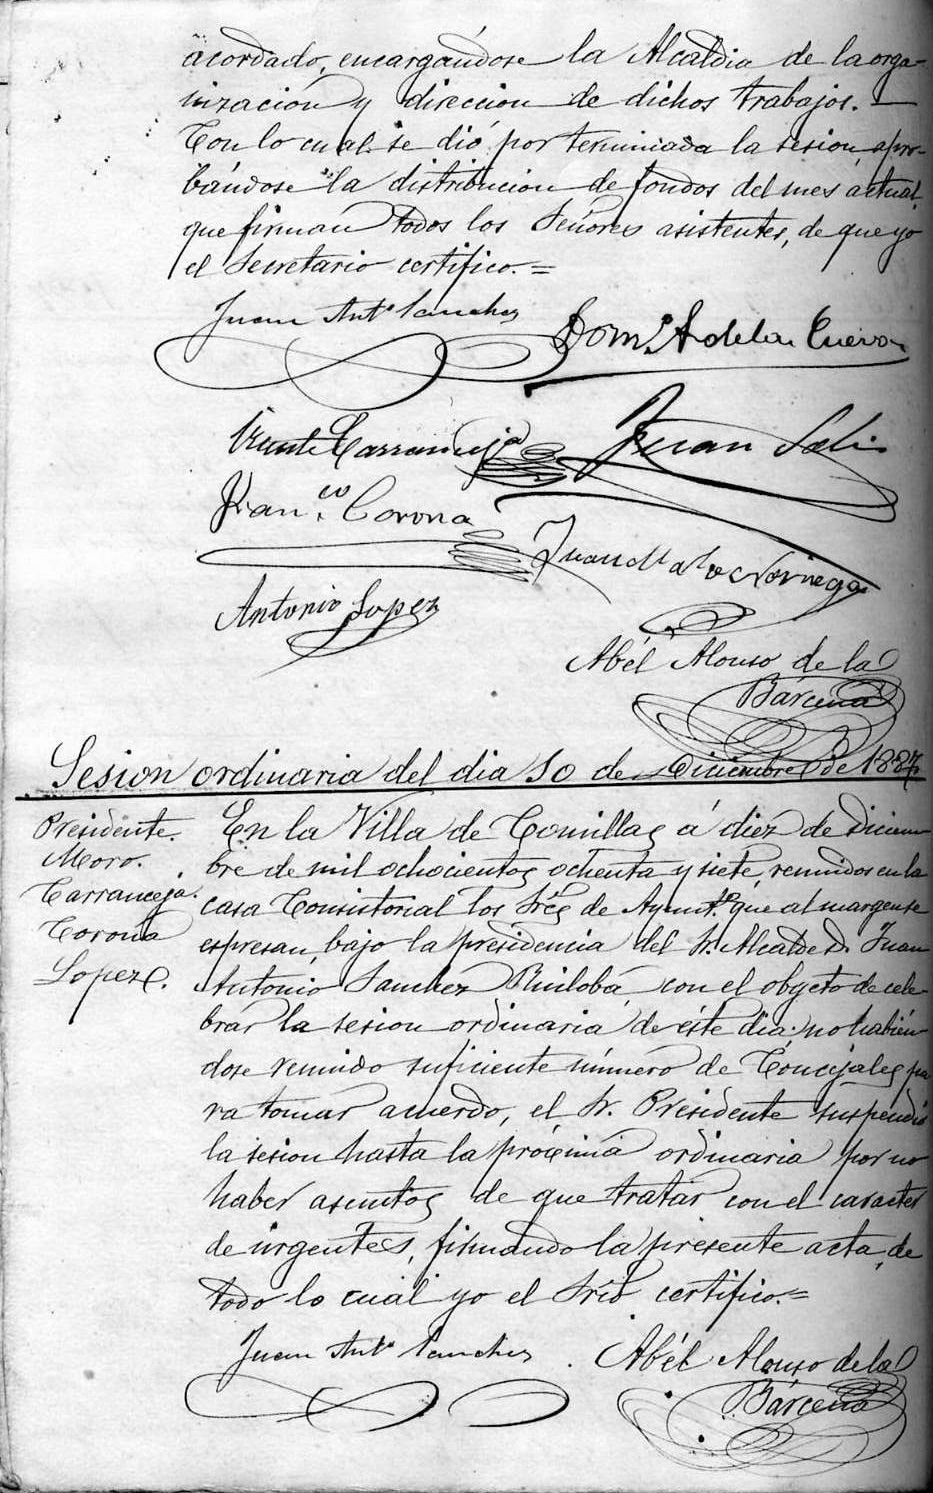 acordado, encargándose la Alcaldia de la orga-
nización y direccion de dichos trabajos. —
Con lo cual se dió por terminada la sesion, apro-
bándose la distribucion de fondos del mes actual,
que firman todos los Señores asistentes, de que yo
el Secretario certifico. =
Juan Antº Sanchez
Domº A de la Cueva
Vicente Carranceja
Juan Solis
Franco Corona
Juan de Noriega
Antonio Lopez
Abél Alonso de la
Bárcena
Sesion ordinaria del dia 10 de Diciembre de 1887
Presidente.
Moro.
Carranceja.
Corona
Lopez.
En la Villa de Comillas á diez de Diciem-
bre de mil ochocientos ochenta y siete, reunidos en la
casa Consistorial los Sres de Ayuntto que al margen se
espresan, bajo la presidencia del Sr. Alcalde D. Juan
Antonio Sanchez Ruilobá, con el obgeto de cele-
brar la sesion ordinaria de éste dia; no habién-
dose reunido suficiente número de Concejales pa-
ra tomar acuerdo, el Sr. Presidente suspendió
la sesion hasta la próxima ordinaria por no
haber asuntos de que tratar con el caracter
de urgentes, firmando la presente acta, de
todo lo cual yo el Srio certifico. =
Juan Antº Sanchez
Abél Alonso de la
Bárcena